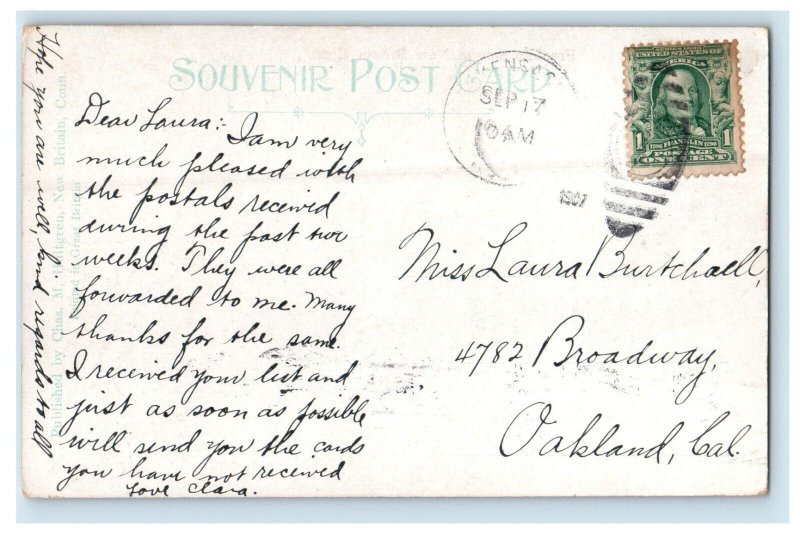 SOUVENIR POST CARD
Dear Laura:- I am very
much pleased with
the postals received
during the past two
weeks. They were all
forwarded to me. Many
thanks for the same.
I received your list and
just as soon as possible
will send you the cards
you have not received
Love Clara.
Hope you are well, kind regards to all
Published by Chas. M. New Britain, Conn.
SEP 17
AM
1907
UNITED STATES OF
AMERICA
1 1706 FRANKLIN 1790 1
POSTAGE
ONE CENT
Miss Laura Burtchaell,
4782 Broadway,
Oakland, Cal.